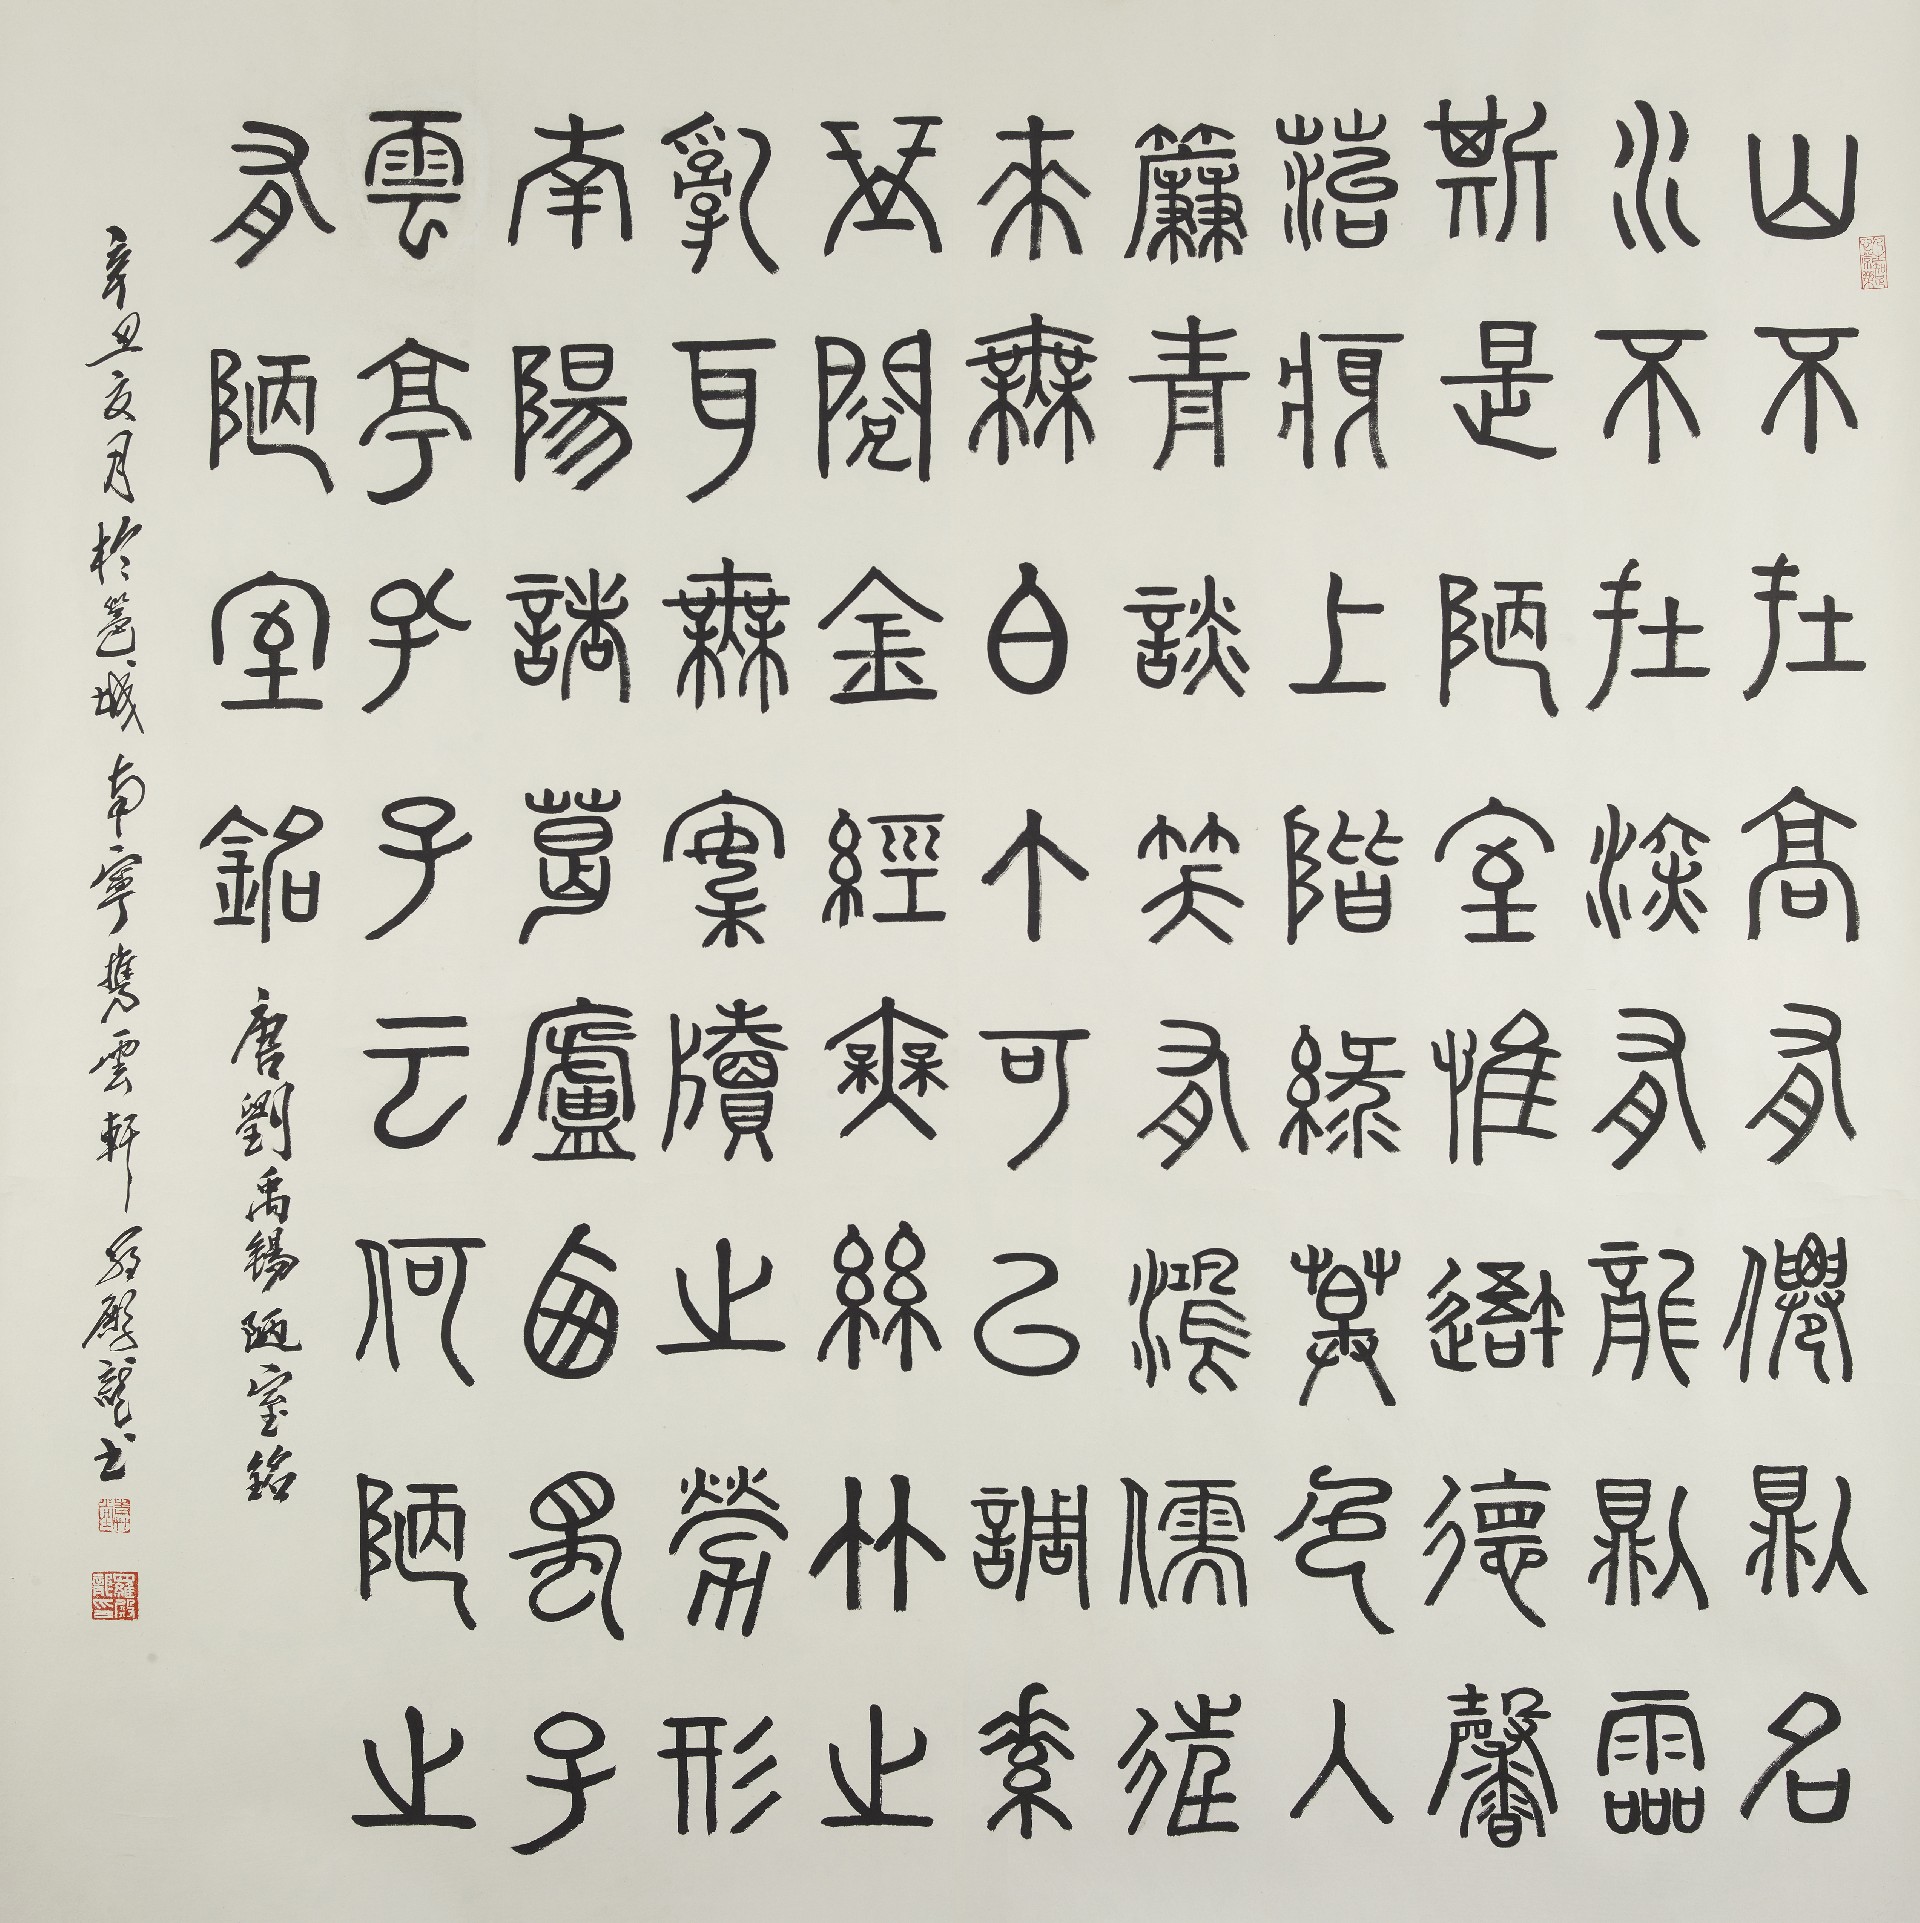 山不在高有僊則名
水不在深有龍則靈
斯是陋室惟吾德馨
菭痕上階緑草色入
簾青談笑有鴻儒往
來無白丁可以調素
琴閱金經無絲竹之
亂耳無案牘之勞形
南陽諸葛廬西蜀子
雲亭孔子云何陋之
有陋室銘 唐劉禹錫陋室銘
辛丑夏月於邕城南寧攜雲軒羅殿龍書
羅殿龍印